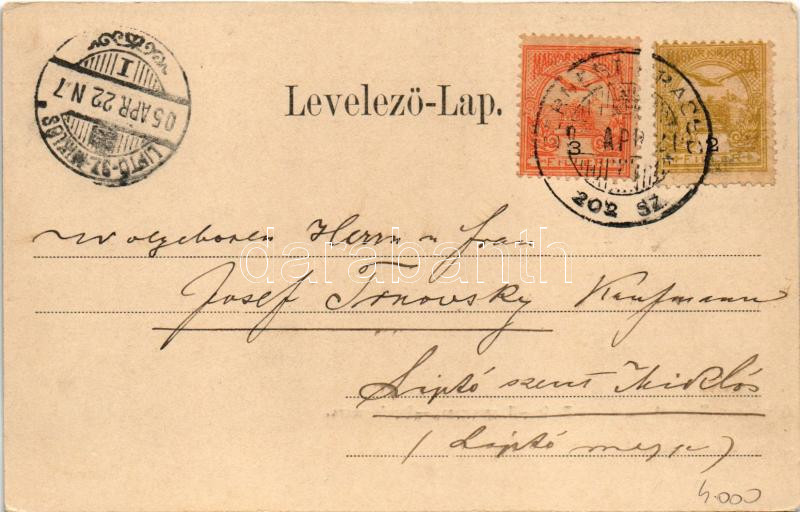 LIPTÓ-SZ.-MIKLÓS
05 APR 22 N.7
I
Levelező-Lap.
MAGYAR KIR. POSTA
3
FILLÉR
MAGYAR KIR. POSTA
2
FILLÉR
APR 21
202 SZ.
Wolgeboren Herrn u frau
Josef Trnovsky Kaufmann
Liptó szent Miklós
(Liptó megye)
darabanth
4.000